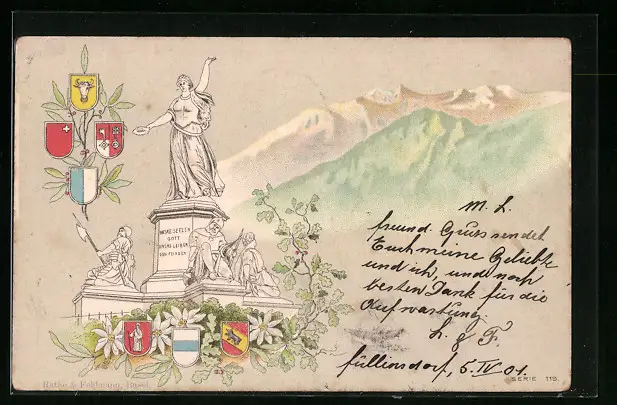 UNSRE SEELEN
GOTT
UNSRE LEIBER
DEN FEINDEN
M. L.
freund. Gruss sendet
Euch meine Geliebte
und ich, und noch
besten Dank für die
Aufwartung.
L. & F.
füllinsdorf, 5. IV 01.
SERIE 119.
Rathe & Fehlmann, Basel.